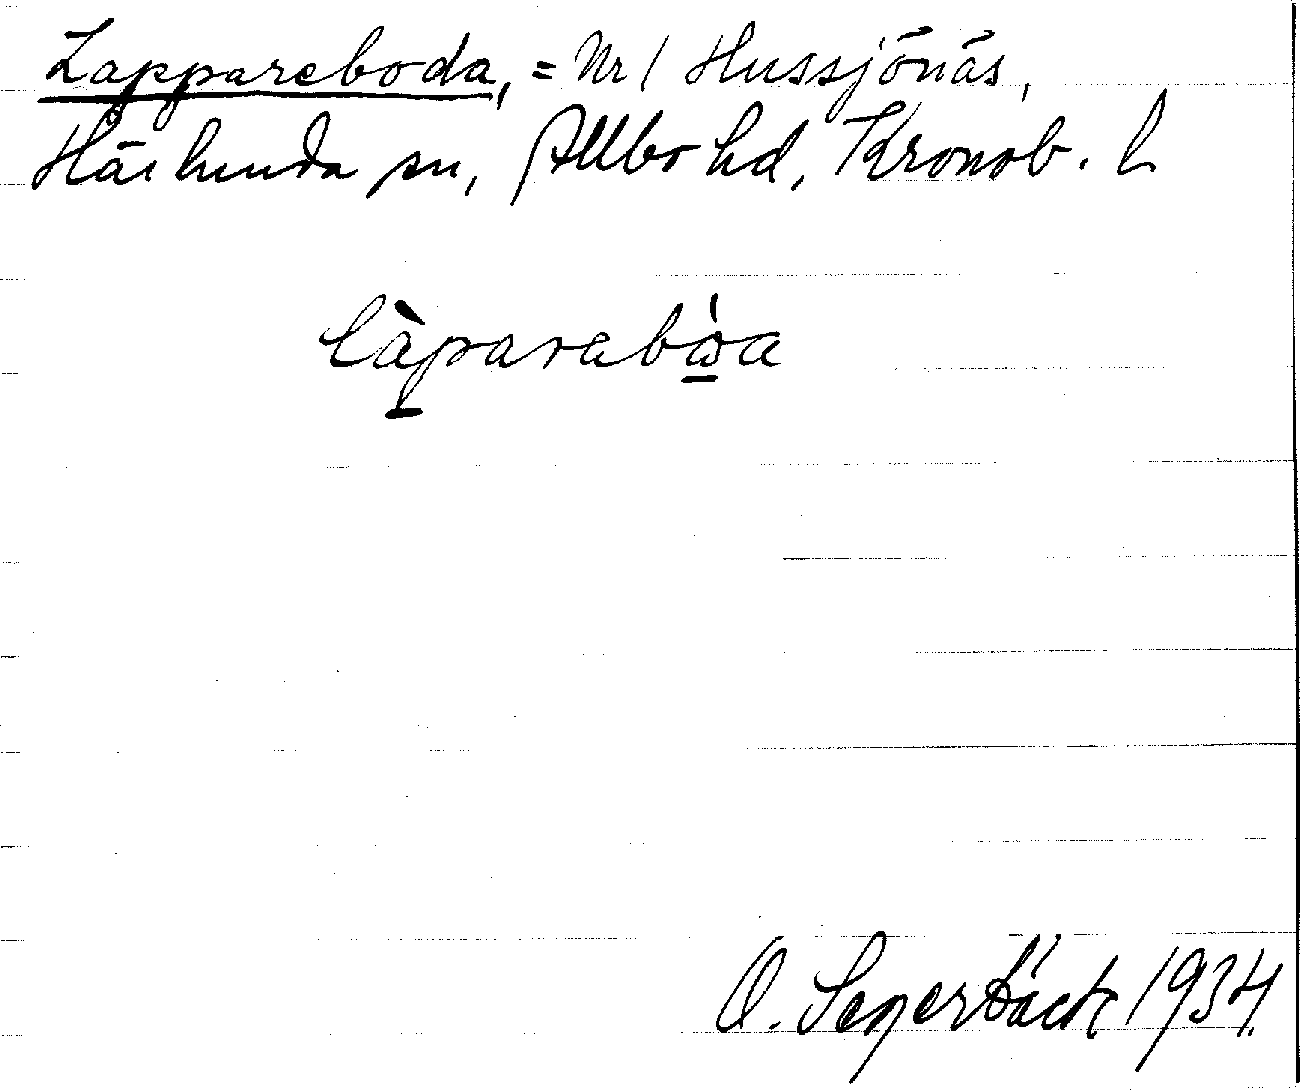 Lappareboda, = Nr 1 Hussjönäs,
Härlunda sn, Allbo hd, Kronob. l
làparabώa
O. Segerbäck 1934.